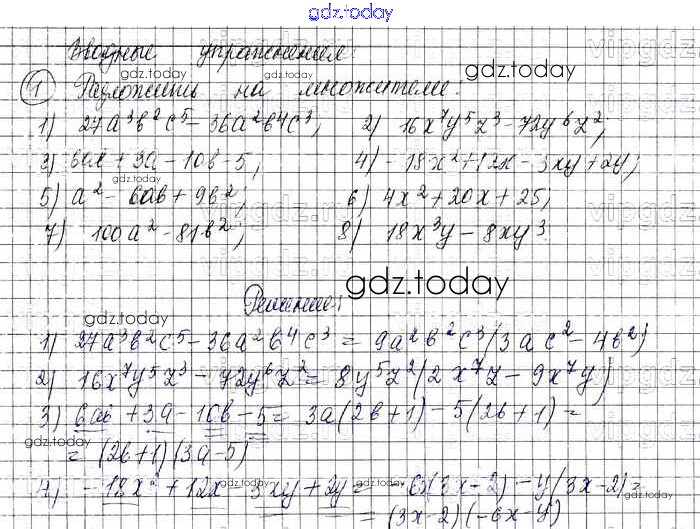 gdz.today
Вводные упражнения:
① Разложить на множители:
1) 27a³b²c⁵ - 36a²b⁴c³; 2) 16x⁷y⁵z³ - 72y⁶z²;
3) 6ab + 3a - 10b - 5; 4) - 18x² + 12x - 3xy + 2y;
5) a² - 6ab + 9b²; 6) 4x² + 20x + 25;
7) 100a² - 81b²; 8) 18x³y - 8xy³
gdz.today
Решение:
1) 27a³b²c⁵ - 36a²b⁴c³ = 9a²b²c³(3ac² - 4b²)
2) 16x⁷y⁵z³ - 72y⁶z² = 8y⁵z²(2x⁷z - 9x⁷y)
3) 6ab + 3a - 10b - 5 = 3a(2b+1) - 5(2b+1) =
= (2b+1)(3a-5)
4) - 18x² + 12x - 3xy + 2y = - 6x(3x-2) - y(3x-2) =
= (3x-2)(-6x-y)